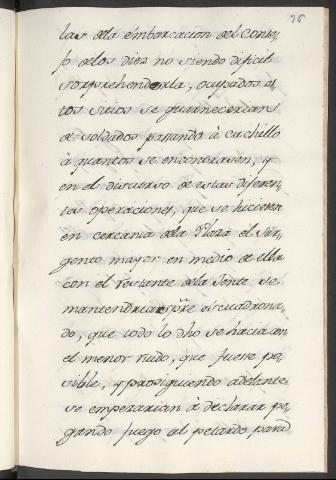 76
las dela émbarcacion del conse-
jo delos diez no siendo dificil
sorprehenderla, ocupados es-
tos sitios se guarnecerians
de soldados passando à cuchillo
à quantos se encontrasen, y
en el discurso de estas diferen-
tes operaciones, que se hicieren
en cercania dela Plaza el Sar-
gento mayor en medio de ella
con el restante dela Jente se
mantendria spre escuadrona-
do, que todo lo dho se hacia con
el menor ruido, que fuese po-
sible, y prosiguiendo adelante
se empezarian à declarar pe-
gando fuego al petardo para